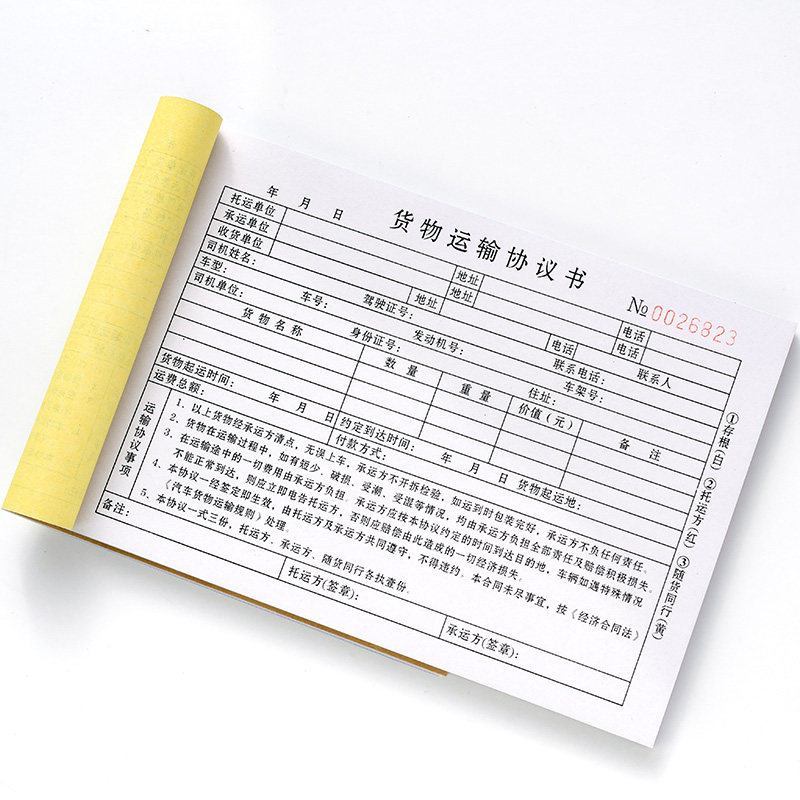 货物运输协议书
№0026823
年 月 日
托运单位 地址 电话
承运单位 地址 电话
收货单位 地址 电话 联系人
司机姓名: 驾驶证号: 联系电话:
车型: 车号: 发动机号: 车架号:
司机单位: 身份证号: 住址:
货物名称 数量 重量 价值(元) 备注
货物起运时间: 年 月 日 约定到达时间: 年 月 日 货物起运地:
运费总额: 付款方式:
运输协议事项
1、以上货物经承运方清点，无误上车，承运方不开拆检验，如运到时包装完好，承运方不负任何责任。
2、货物在运输过程中，如有短少、破损、受潮、受湿等情况，均由承运方负担全部责任及赔偿积极损失。
3、在运输途中的一切费用由承运方负担。承运方应按本协议约定的时间到达目的地，车辆如遇特殊情况
不能正常到达，则应立即电告托运方，否则应赔偿由此造成的一切经济损失。
4、本协议一经签定即生效，由托运方及承运方共同遵守，不得违约。本合同未尽事宜，按《经济合同法》
《汽车货物运输规则》处理。
5、本协议一式三份，托运方、承运方、随货同行各执壹份。
备注:
托运方(签章):
承运方(签章):
①存根(白) ②托运方(红) ③随货同行(黄)